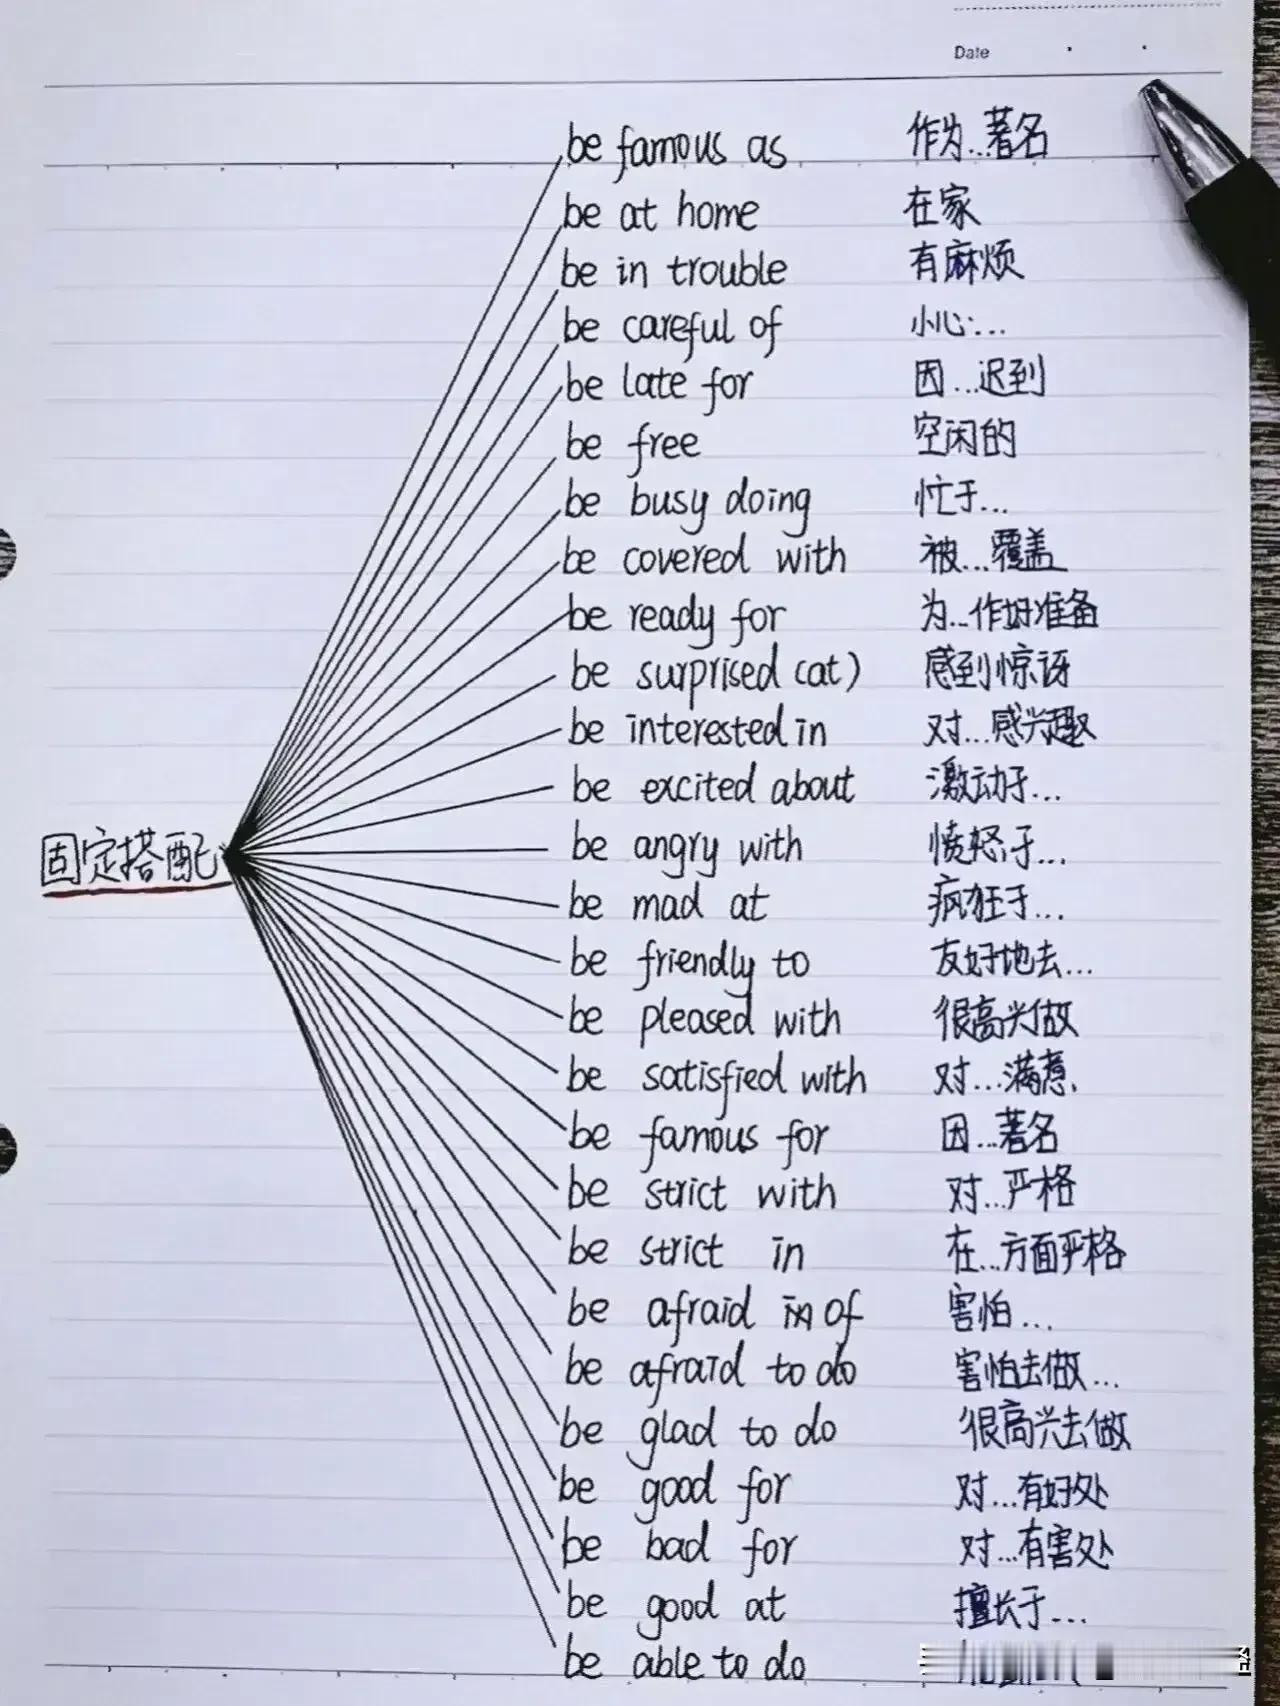 Date
be famous as 作为...著名
be at home 在家
be in trouble 有麻烦
be careful of 小心...
be late for 因...迟到
be free 空闲的
be busy doing 忙于...
be covered with 被...覆盖
be ready for 为...作好准备
be surprised (at) 感到惊讶
be interested in 对...感兴趣
be excited about 激动于...
be angry with 愤怒于...
固定搭配
be mad at 疯狂于...
be friendly to 友好地去...
be pleased with 很高兴做
be satisfied with 对...满意
be famous for 因...著名
be strict with 对...严格
be strict in 在...方面严格
be afraid of 害怕...
be afraid to do 害怕去做...
be glad to do 很高兴去做
be good for 对...有好处
be bad for 对...有害处
be good at 擅长于...
be able to do